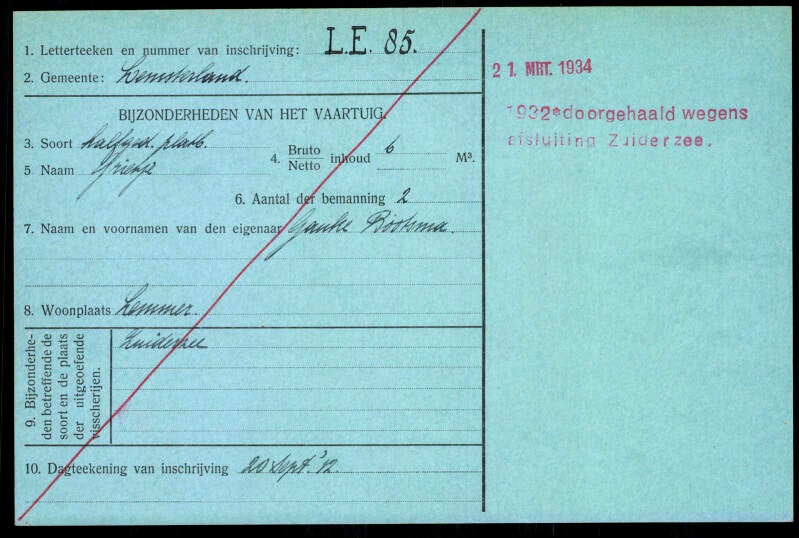 1. Letterteeken en nummer van inschrijving: L.E. 85.
2. Gemeente: Lemsterland.
BIJZONDERHEDEN VAN HET VAARTUIG.
3. Soort halfged. platb.
4. Bruto Netto inhoud 6 M³.
5 Naam Grietje
6. Aantal der bemanning 2
7. Naam en voornamen van den eigenaar Gauke Bootsma.
8. Woonplaats Lemmer.
9. Bijzonderhe-
den betreffende de
soort en de plaats
der uitgeoefende
visscherijen.
Zuiderzee
10. Dagteekening van inschrijving 20 Sept. '12.
21. MRT. 1934
1932 doorgehaald wegens
afsluiting Zuiderzee.